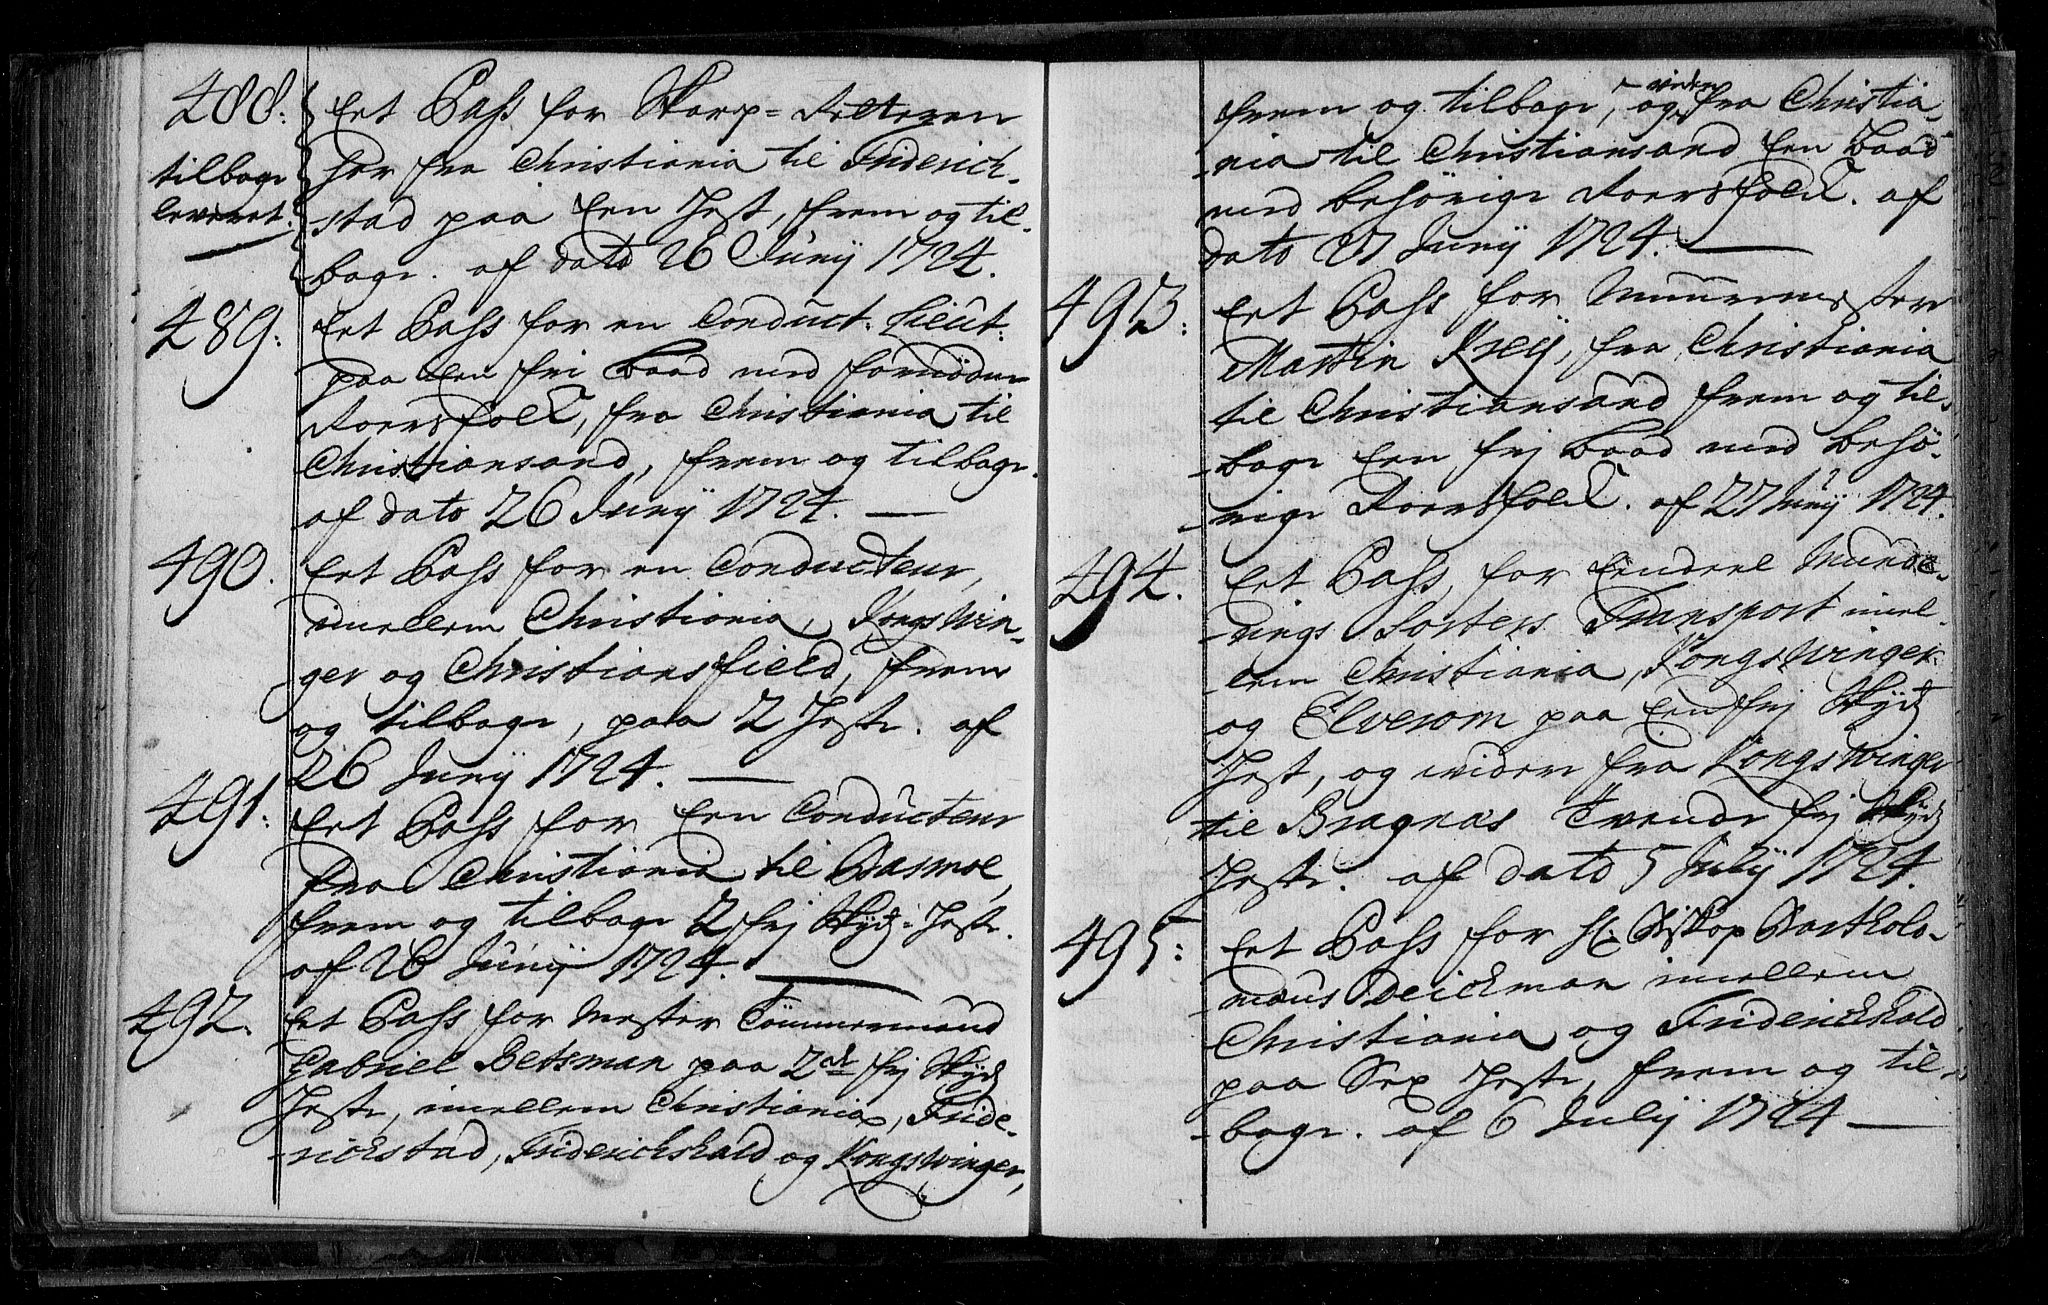 488:
tilbage
leveret.
Eet Pass for Skarp=Retteren
her fra Christiania til Friderich-
-stad paa Een Hest, frem og til-
bage. af dato 26 Junij 1724.
489:
Eet Pass for en Conduct: Lieut:
paa Een fri Baad med fornöden
Roersfolk, fra Christiania til
Christiansand, frem og tilbage.
af dato 26 Junij 1724.
490.
Eet Pass for en Conducteur,
imellem Christiania, Kongswin-
ger og Christiansfield, frem
og tilbage, paa 2 Heste. af
26 Junij 1724.
491:
Eet Pass for Een Conducteur
fra Christiania til Basmoe,
frem og tilbage 2 frj Skyds-Heste.
af 26 Junij 1724.
492.
Et Pass for Mester Tömmermand
Gabriel Betsman paa 2de frj Skyds
Heste, imellem Christiania, Fride-
-richstad, Friderichshald og Kongswinger,
frem og tilbage, og viidere fra Christia-
-nia til Christiansand Een Baad
med behörige Roersfolk. af
dato 27 Junij 1724.
493:
Eet Pass for Muurmester
Martin Kreij, fra Christiania
til Christiansand frem og til-
-bage Een frj Baad med behö-
-rige Roersfolk. af 27 Junij 1724.
494.
Eet Pass for Eendeel Munde-
-rings Sorters Transport imel-
-lem Christiania, Kongswinger
og Elverom paa Een frj Skyds
Hest, og videre fra Kongswinger
til Bragnæs Tvende frj Skyds
Heste. af dato 5 Julij 1724.
495:
Eet Pass for Hr: Biskop Bartholo-
mæus Deichman imellem
Christiania og Friderichshald
paa Sex Heste, frem og til-
-bage. af 6 Julij 1724